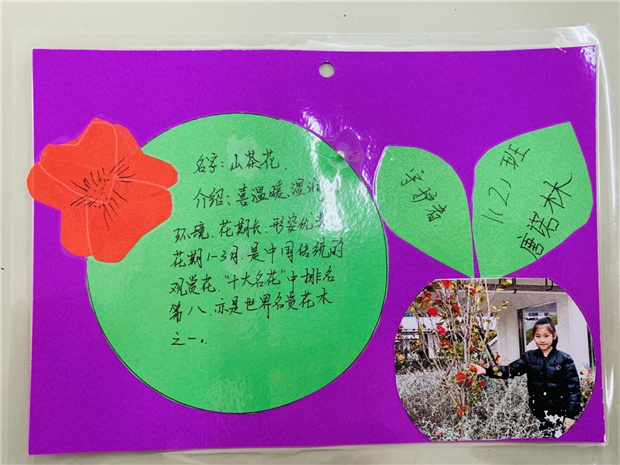 名字：山茶花
介绍：喜温暖、湿润
环境、花期长、形姿优美
花期1-3月.是中国传统的
观赏花,“十大名花”中排名
第八,亦是世界名贵花木
之一.
守护者
1(2)班
唐诺林